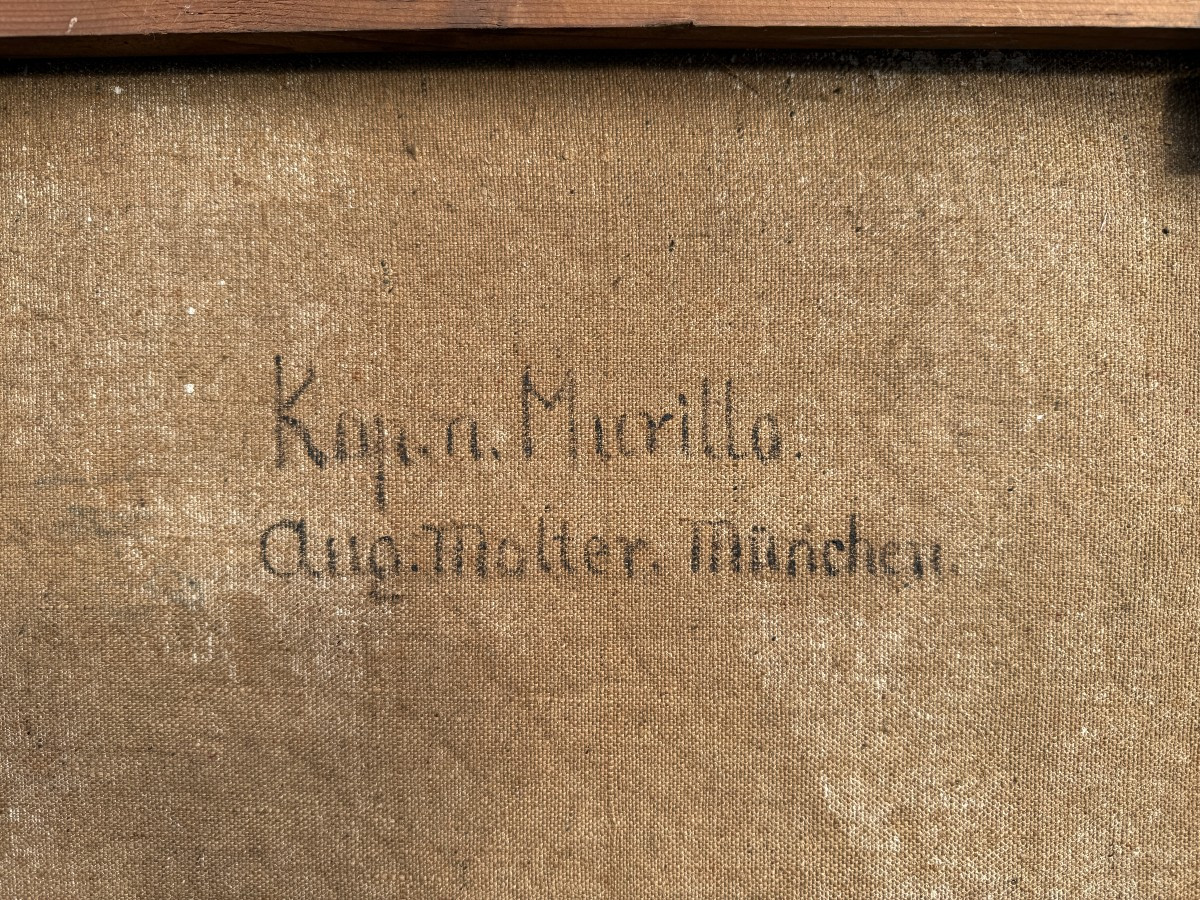 Kop. n. Murillo.
Aug. Molter. München.